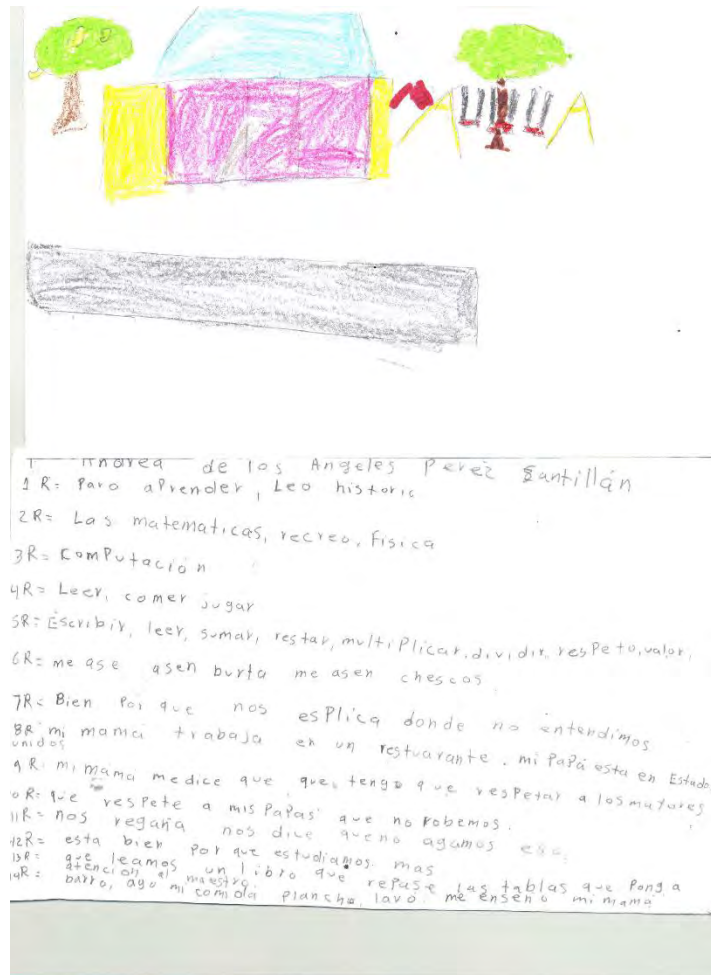 Andrea de los Angeles Perez Santillán
1 R= Para aprender, Leo historic
2R= Las matematicas, recreo, Fisica
3R= Computación
4R= Leer, comer jugar
5R= Escribir, leer, sumar, restar, multiplicar, dividir, respeto, valor,
6R= me ase asen burla me asen chescos
7R= Bien Por que nos esplica donde no entendimos
8R mi mama trabaja en un restuarante. mi PaPá esta en Estado
unidos
9 R: mi mama medice que que tengo que respetar a los mayores
0 R= que respete a mis PaPas que no robemos.
11R= nos regaña nos dice queno agamos eso,
12R= esta bien por que estudiamos mas
13R= que leamos un libro que repase las tablas que Ponga
atencion al maestro.
14R= barro, ago mi comida plancho, lavo me enseño mi mama